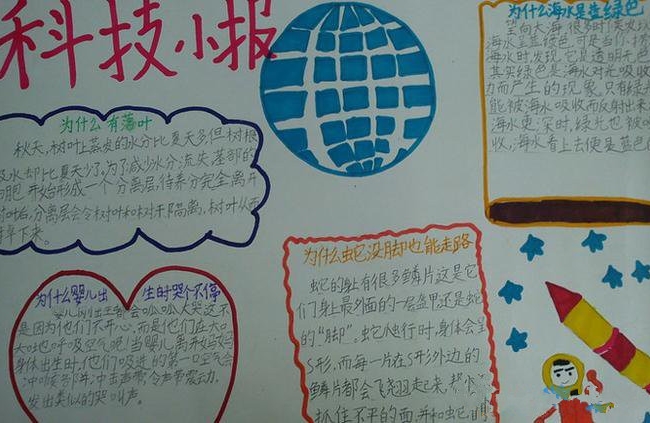 科技小报
为什么有落叶
秋天,树叶上蒸发的水分比夏天多,但树根
吸水却比夏天少了,为了减少水分流失,基部的
细胞开始形成一个分离层,待养分完全离开
树叶后,分离层会令树叶和树干隔离,树叶从而
掉下来。
为什么海水是蓝绿色
望向大海,很多时候发
海水呈蓝绿色,可是当你
海水时发现,它是透明无色
其实绿色是海水对光吸收
力而产生的现象,只有绿光
能被海水吸收而反射出来
海水更深时,绿光也被吸
收,海水看上去便是蓝色
为什么婴儿出生时哭个不停
会呱呱大哭,这不
是因为他们不开心,而是他们在大口
大口也呼吸空气呢!当婴儿离开妈妈
身体出生时,他们吸进的第一口空气会
冲击声带,令声带震动,
发出类似的哭叫声。
为什么蛇没脚也能走路
蛇的身上有很多鳞片,这是它
们身上最外面的一层盔甲,还是蛇
的“脚”。蛇爬行时,身体会呈
S形,而每一片在S形外边的
鳞片都会飞翘起来,
抓住不平的面,并和蛇